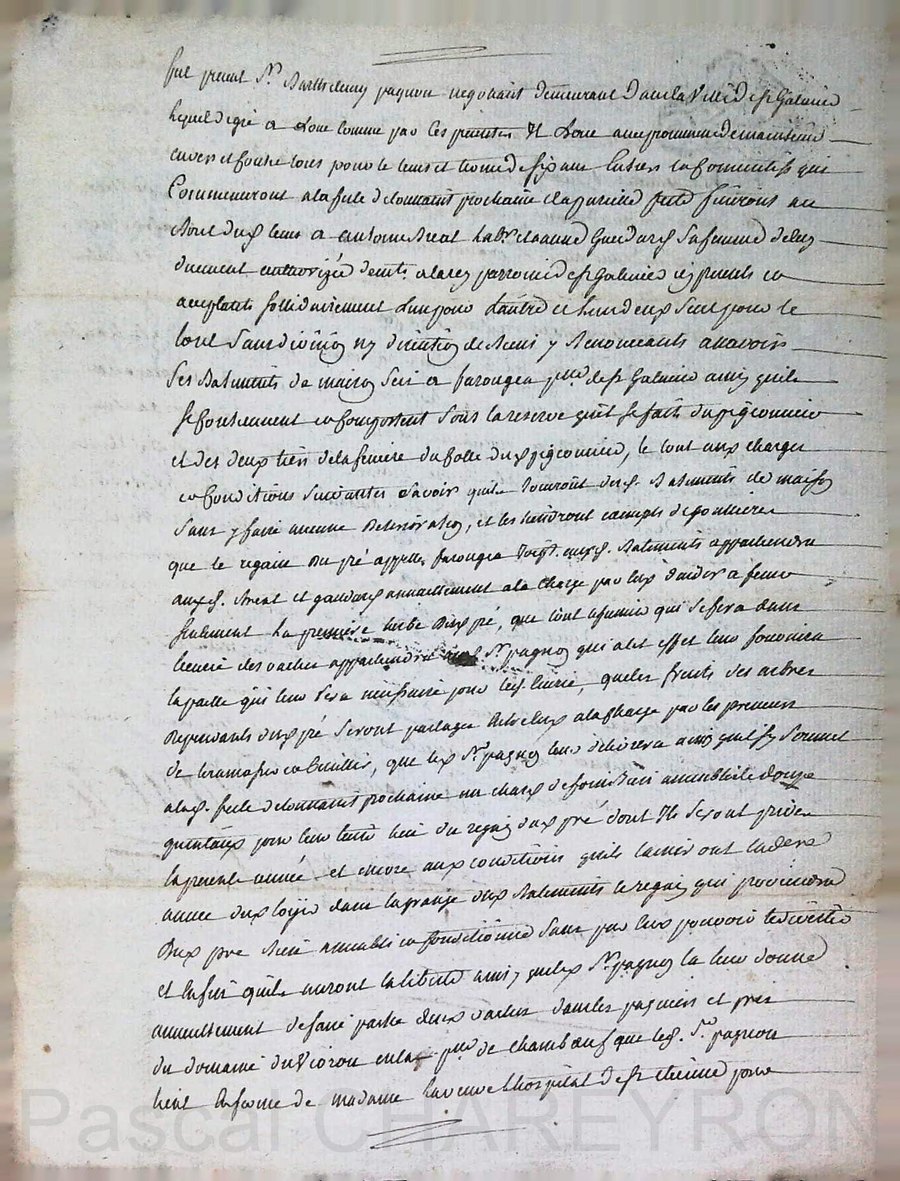 fut présent Sr. Barthelemy pagnon negotiant demeurant dans la Ville de st Galmier
lequel de gré a Loué comme par ces présentes Il Loue avec promesse de maintenir
envers et contre tous pour le tems et terme de six ans entiers et consecutifs qui
Commenceront a la fete de toussaint prochaine et a pareille fete finiront au
bout dud. tems a antoine Preat labr. et anne Gaudard sa femme de luy
duement authorizée dem.ts a la parroisse de st Galmier cy presents et
acceptants sollidairement L'un pour L'autre et L'un deux seul pour le
tout sans divion ny discution de biens y Renonceants a savoir
Les Batiments de maison Scis a farouzea psse. de st Galmier ainsy quils
se Contiennent et se Comportent sous la reserve qu'il se fait du pigeonnier
et des deux tiers de la feniere du folle dud. pigeonnier, le tout aux charges
et Conditions Suivantes Savoir quils Jouiront desd. Batiments de maison
Sans y faire aucune Deterioration, et les tiendront exempts de goutières
que le regain du pré appellé farouzea Joig.t auxd. Batiments appartiendra
auxd. Preat et gaudard annuellement a la Charge par eux d'aider a fener
seulement la première herbe Dud. pré, que tout le fumier qui se fera dans
l'écurie des vaches appartiendra aud. Sr. pagnon qui a cet effet leur fournira
la paille qui leur sera nécessaire pour lad. Ecurie, que les fruits des arbres
Dependants dud. pré Seront partagés entre eux a la Charge par les preneurs
de les ramasser et Cueillir, que led. Sr. pagnon leur délivrera ainsy quil sy soumet
a lad. fete de toussaint prochaine un chard de foin bien amenbblé de douze
quintaux pour leur tenir lieu du regain dud. pré dont Ils seront privés
la presente année et encore aux conditions quils laisseront la derre
annee dud. loyer dans la grange dud. Batiments le regain qui proviendra
Dud. pré bien et conditionné Sans par eux pouvoir le divertir
et Enfin quils auront la liberté ainsy que led. Sr. pagnon la leur donne
annuellement de faire paitre deux vaches dans les paquiers et prés
du domaine du Vioron en la psse. de chambœuf que led. Sr. pagnon
tient En ferme de madame La veuve Lhospital de st etienne pour
Pascal CHAREYRON